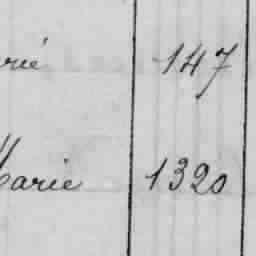 rié 147
Marie 1320